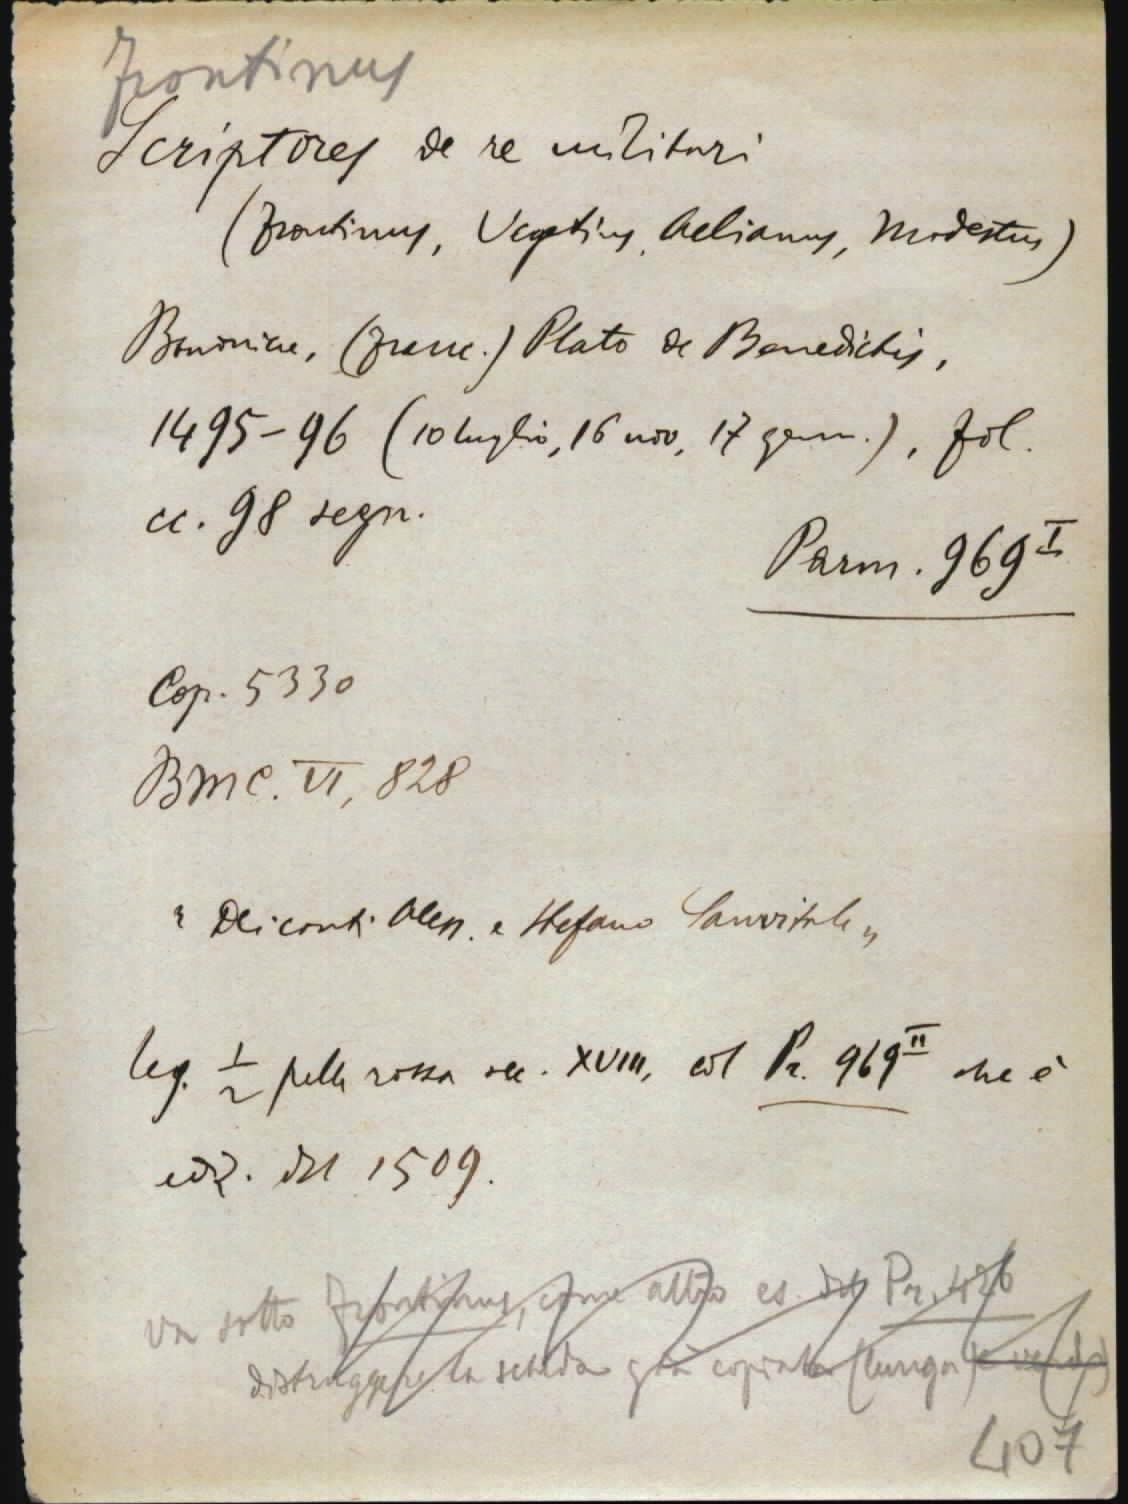 Frontinus
Scriptores de re militari
(Frontinus, Vegetius, Aelianus, Modestus)
Bononiae, (Franc.) Plato de Benedictis,
1495-96 (10 luglio, 16 nov, 17 genn.), fol.
cc. 98 segn.
Parm. 969 I
Cop. 5330
BMC. VI, 828
"Dei conti Aless. e Stefano Sanvitale"
leg. 1/2 pelle rossa sec. XVIII, col Pr. 969 II che è
ediz. del 1509.
va sotto Frontinus, come altro es. del Pr. 426
distruggere la scheda già copiata (lunga)
407